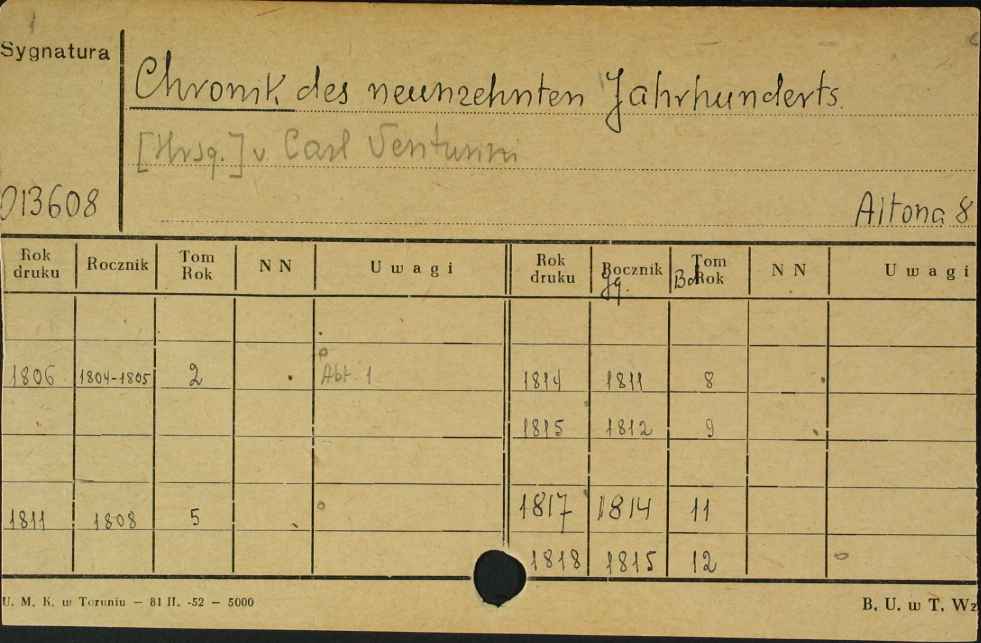 Sygnatura
Chronik des neunzehnten Jahrhunderts.
[Hrsg.] v. Carl Venturini
013608
Altona 8
Rok druku Rocznik Tom Rok N N U w a g i Rok druku Rocznik Jg. Tom Rok Bd N N U w a g i
1806 1804-1805 2 Abt. 1 1814 1811 8
1815 1812 9
1811 1808 5 1817 1814 11
1818 1815 12
U. M. K. w Toruniu — 81 II. -52 — 5000 B. U. w T. Wz